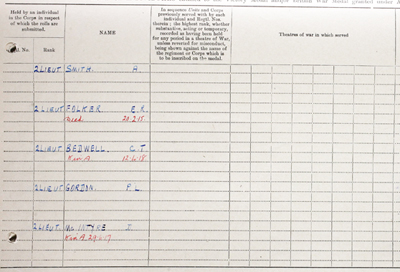 Held by an individual
in the Corps in respect
of which the rolls are
submitted.
NAME
In sequence Units and Corps
previously served with by each
individual and Regtl. Nos.
therein; the highest rank, whether
substantive, acting or temporary,
recorded as having been held
for any period in a theatre of War,
unless reverted for misconduct,
being shown against the name of
the regiment or Corps which is
to be inscribed on the medal.
Theatres of war in which served
No. Rank
2 LIEUT SMITH. A.
2 LIEUT E.R.
Dead
2 LIEUT BEDWELL C.T.
K in A 12.4.18
2 LIEUT GORDON. P.L.
2 LIEUT. McINTYRE
K in A